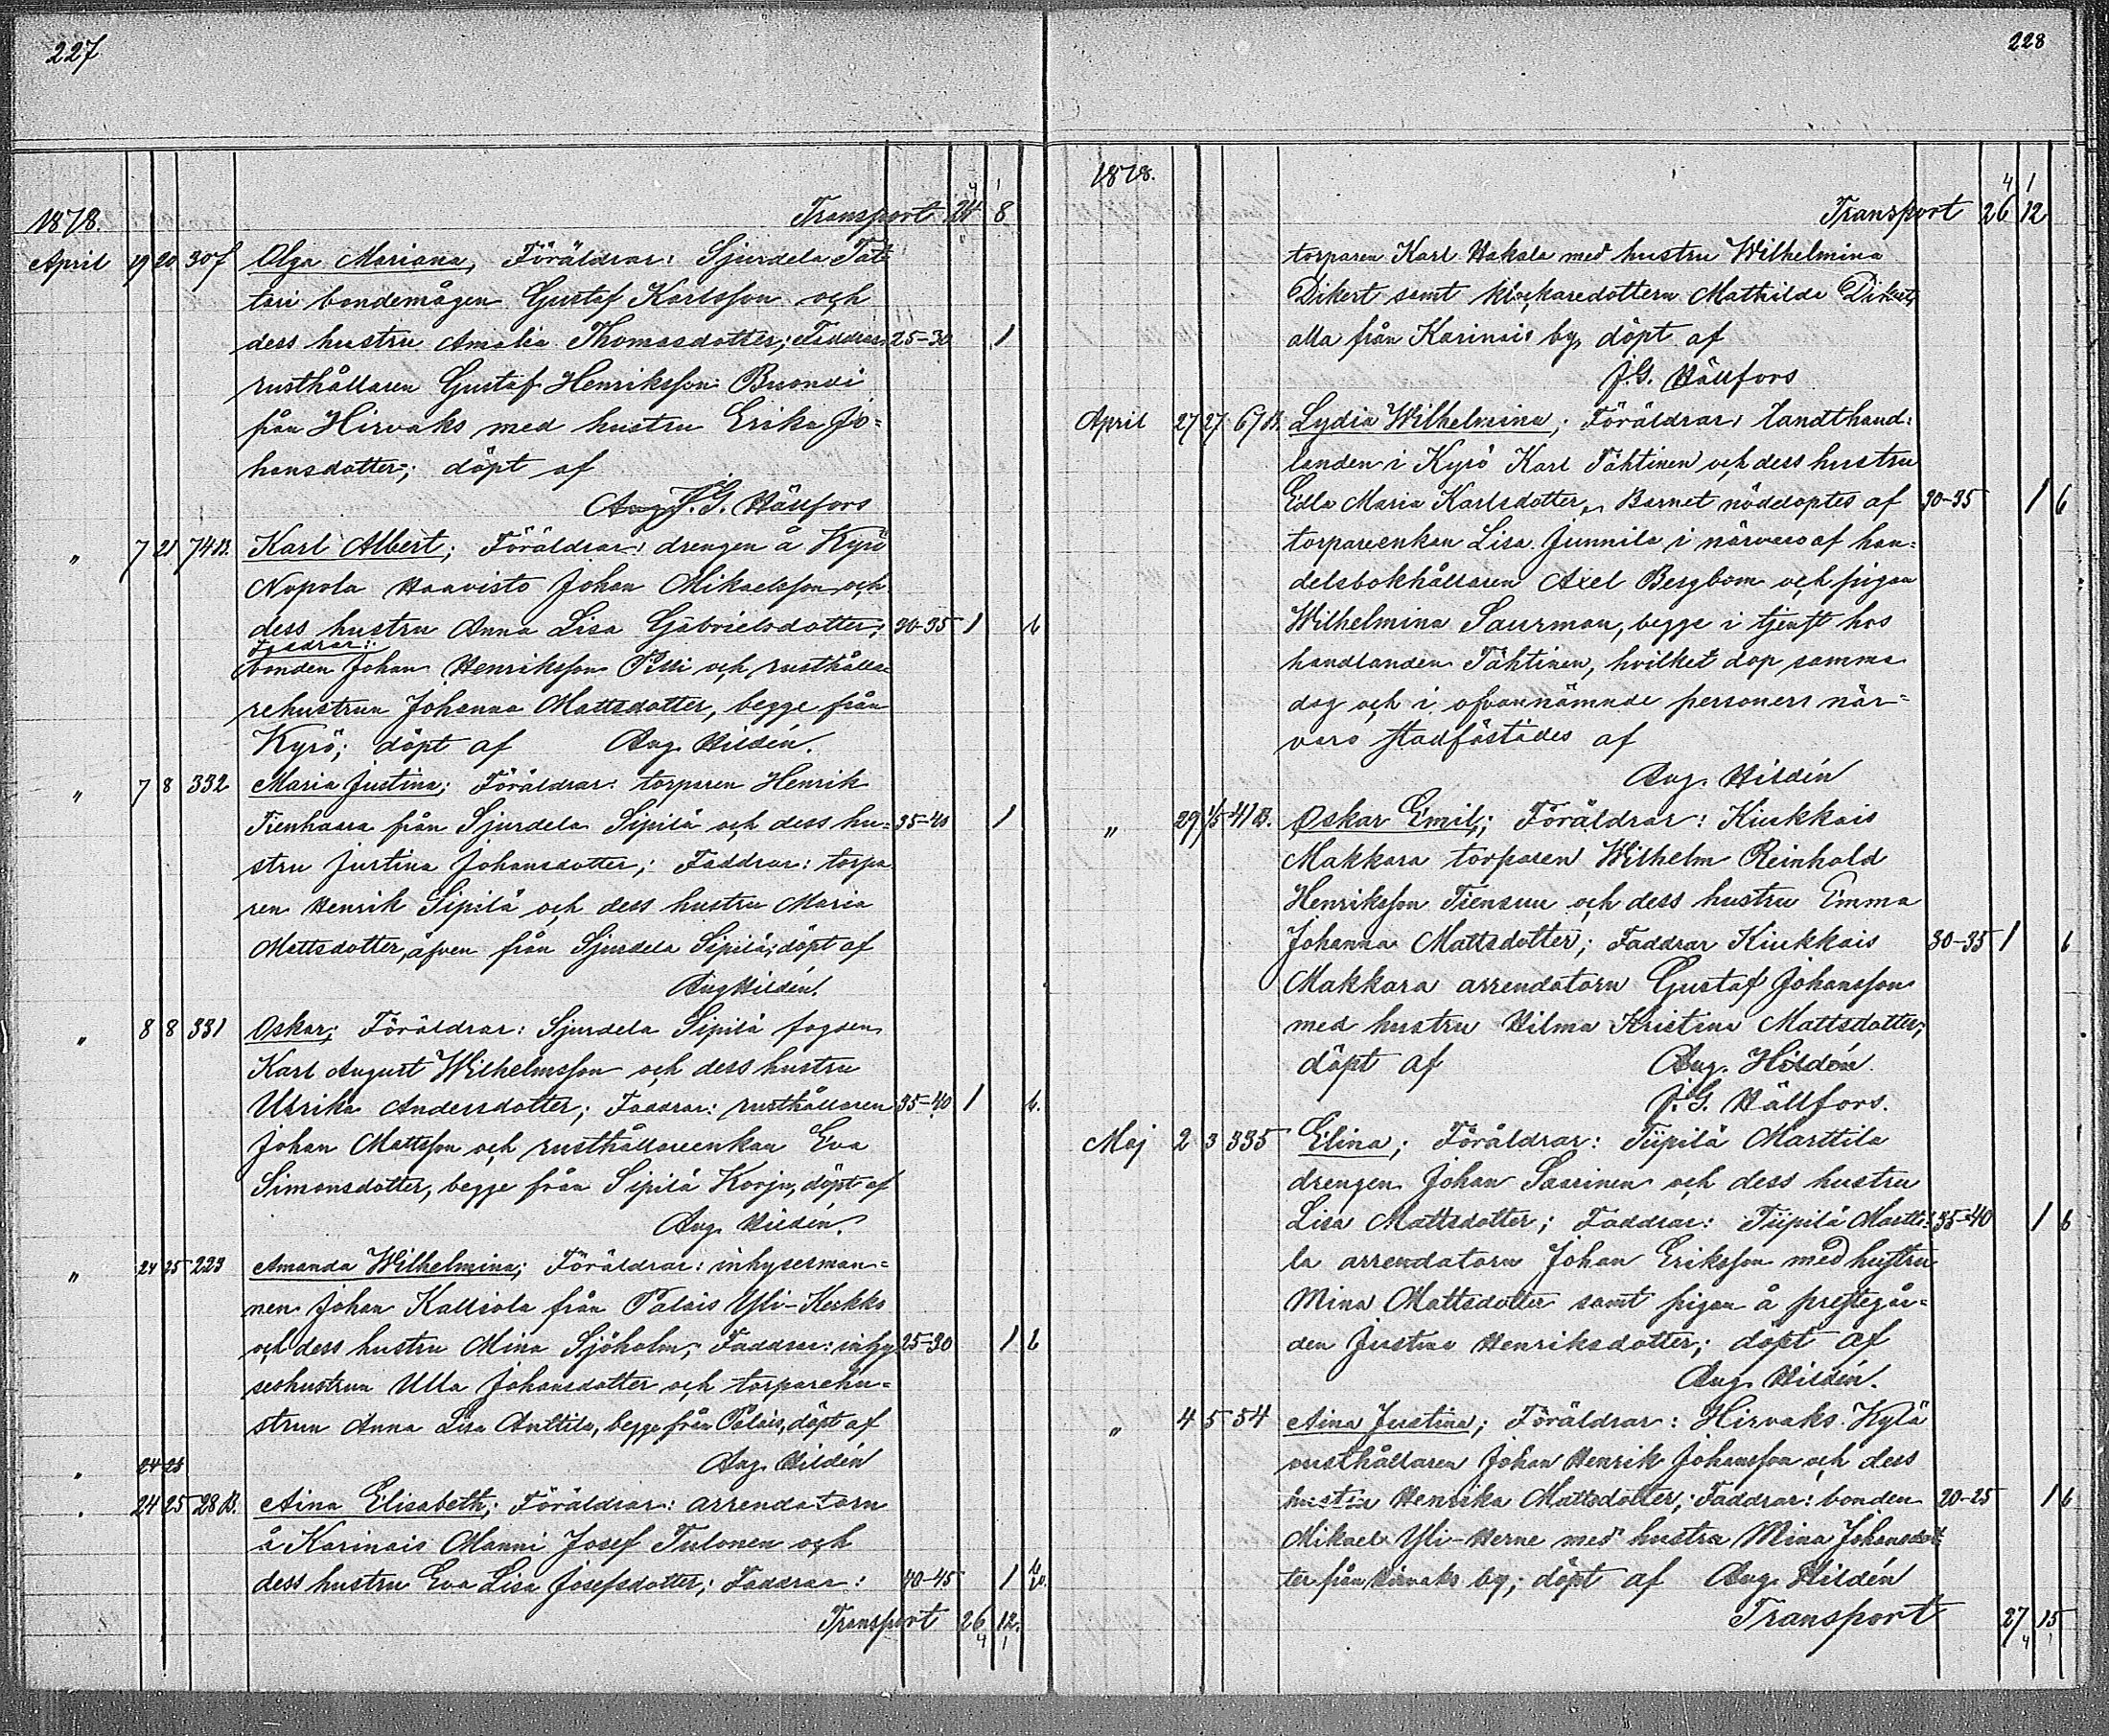 227
1878. Transport 24 8
4 1
April 19 20 307 Olga Mariana, Föräldrar: Sjurdela Tat-
tari bondemågen Gustaf Karlsson och
dess hustru Amalia Thomasdotter; Faddrar: 25-30 1
rusthållaren Gustaf Henriksson
från Hirvaks med hustru Erika Jo-
hansdotter; döpt af
Aug. J. G. Hällfors
" 7 21 74 B. Karl Albert; Föräldrar: drengen å Kyrö
Nopola Haavisto Johan Mikaelsson och
dess hustru Anna Lisa Gabrielsdotter; 30-35 1 6
Faddrar:
bonden Johan Henriksson Pelli och rusthålla-
rehustrun Johanna Mattsdotter, begge från
Kyrö; döpt af Aug. Hildén.
" 7 8 332 Maria Justina; Föräldrar: torparen Henrik
Tienhaara från Sjurdela Sipilä och dess hu- 35-40 1
stru Justina Johansdotter; Faddrar: torpa
ren Henrik Sipilä och dess hustru Maria
Mattsdotter, äfven från Sjurdela Sipilä; döpt af
Aug Hildén.
" 8 8 331 Oskar; Föräldrar: Sjurdela Sipilä fogden
Karl August Wilhelmsson och dess hustru
Ulrika Andersdotter; Faddrar: rusthållaren 35-40 1 6.
Johan Mattsson och rusthållareenkan Eva
Simonsdotter, begge från Sipilä Korju, döpt af
Aug. Hildén.
" 24 25 223 Amanda Wilhelmina; Föräldrar: inhysesman-
nen Johan Kalliola från Palais Yli-Kerkko
och dess hustru Mina Sjöholm; Faddrar: inhy 25-30 1 6
seshustrun Ulla Johansdotter och torparehu-
strun Anna Lisa Anttila, begge från Palais, döpt af
" 24 25 Aug. Hildén
" 24 25 28 B. Aina Elisabeth; Föräldrar: arrendatorn
å Karinais Manni Josef Tulonen och
dess hustru Eva Lisa Josefsdotter; Faddrar: 40-45 1
Transport 26 12.
4 1
228
1878.
4 1
Transport 26 12
torparen Karl Hakala med hustru Wilhelmina
Dikert samt klockaredottern Mathilda Dikert,
alla från Karinais by, döpt af
J. G. Hällfors
April 27 27 67 B. Lydia Wilhelmina; Föräldrar: landthand-
landen i Kyrö Karl Tähtinen och dess hustru
Edla Maria Karlsdotter, Barnet nöddöptes af 30-35 1 6
torpareenkan Lisa Junnila i närvaro af han-
delsbokhållaren Axel Bergbom och pigan
Wilhelmina Saurman, begge i tjenst hos
handlanden Tähtinen, hvilket dop samma
dag och i ofvannämnde personers när-
varo stadfästades af
Aug. Hildén
" 29 1/5 41 B. Oskar Emil; Föräldrar: Kiukkais
Makkara torparen Wilhelm Reinhold
Henriksson Tiensuu och dess hustru Emma
Johanna Mattsdotter; Faddrar Kiukkais 30-35 1 6
Makkara arrendatorn Gustaf Johansson
med hustru Hilma Kristina Mattsdotter;
döpt af Aug. Hildén.
J. G. Hällfors.
Maj 2 3 335 Elina; Föräldrar: Tiipilä Marttila
drengen Johan Saarinen och dess hustru
Lisa Mattsdotter; Faddrar: Tiipilä Martti- 35-40 1 6
la arrendatorn Johan Eriksson med hustru
Mina Mattsdotter samt pigan å prestegår-
den Justina Henriksdotter; döpt af
Aug. Hildén.
" 4 5 54 Aina Justina; Föräldrar: Hirvaks Kylä
rusthållaren Johan Henrik Johansson och dess
hustru Henrika Mattsdotter; Faddrar: bonden 20-25 1 6
Mikael Yli-Herne med hustru Mina Johansdot
ter från Hirvaks by; döpt af Aug. Hildén
Transport 27 15
4 1